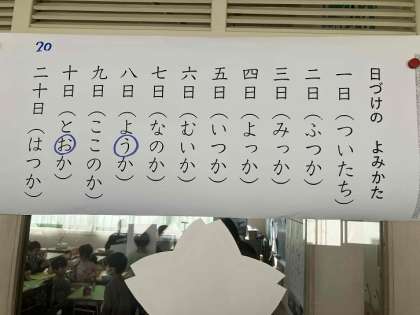 日づけの よみかた
一日(ついたち)
二日(ふつか)
三日(みっか)
四日(よっか)
五日(いつか)
六日(むいか)
七日(なのか)
八日(ようか)
九日(ここのか)
十日(とおか)
二十日(はつか)
20